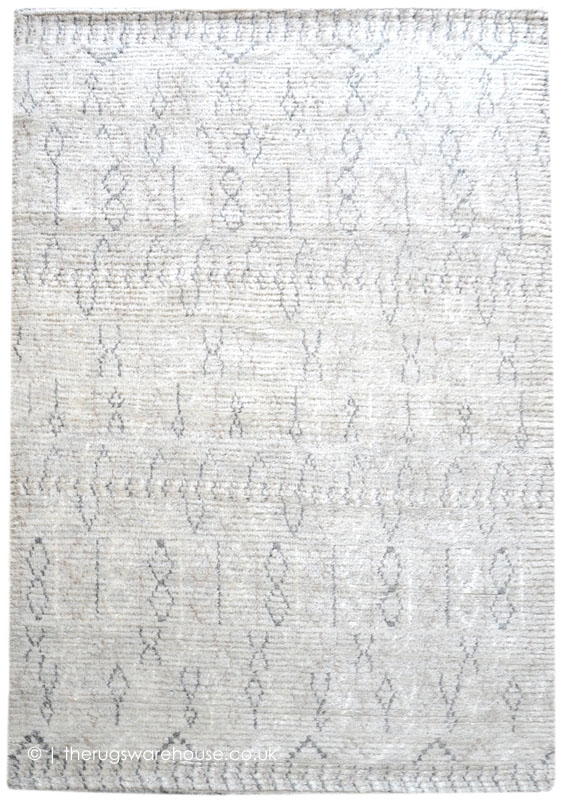 © | therugswarehouse.co.uk